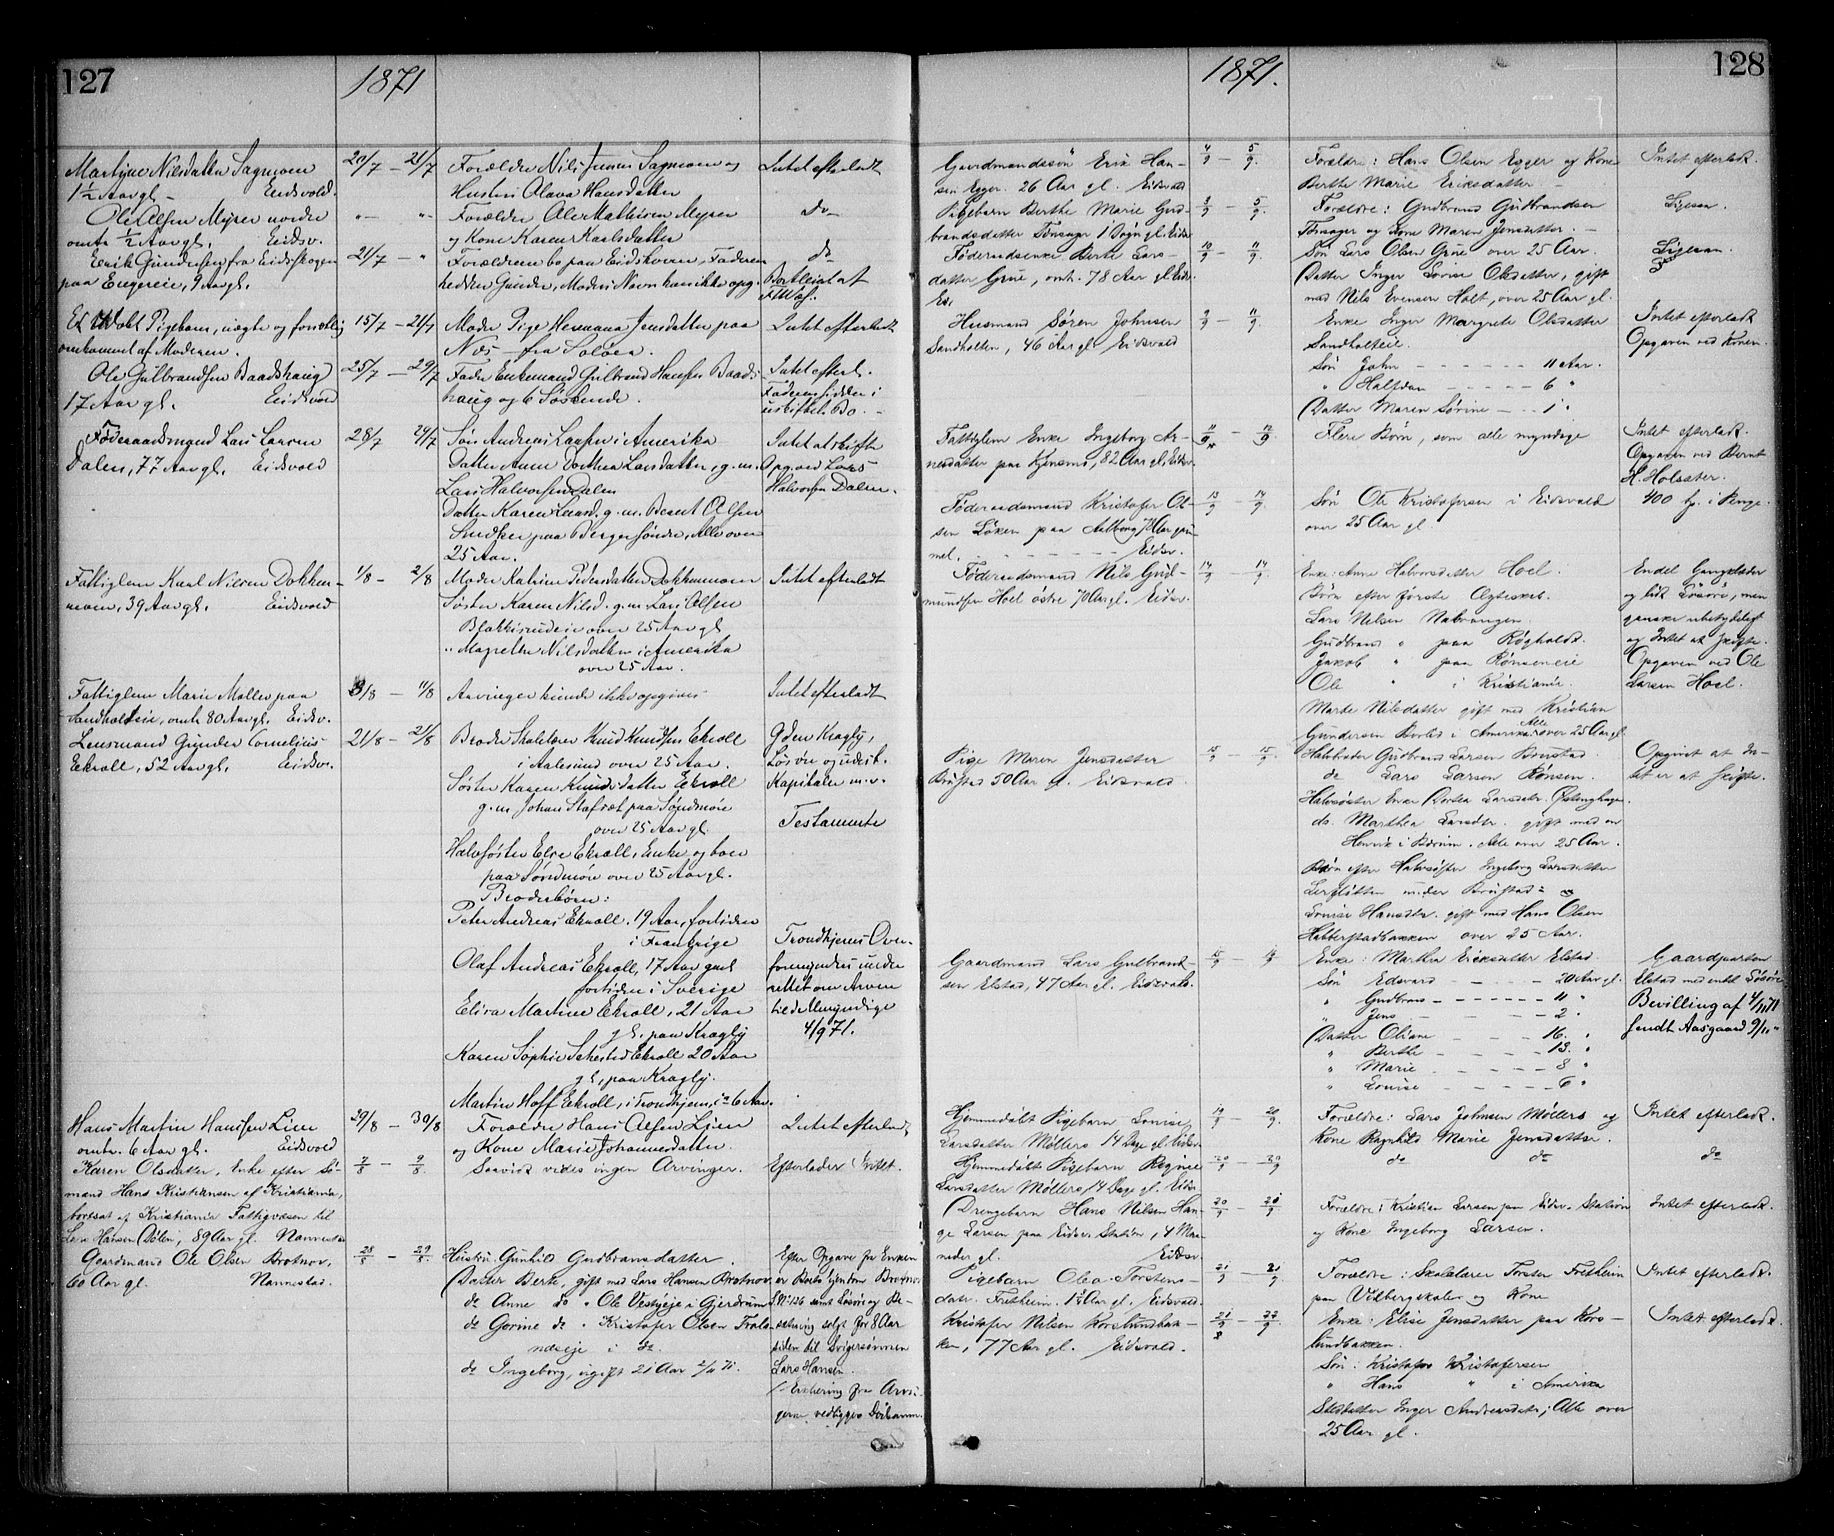 127
1871
Martine Nilsdatter Sagmoen 20/7 — 21/7 Forældre Nils Jensen Sagmoen og Intet efterladt
1½ Aar gl. Eidsvold. Hustru Olava Hansdatter
Ole Olsen Myrer nordre "— " Forældre Ole Mathisen Myrer do
omtr ½ Aar gl. Eidsv. og Kone Karen Karlsdatter
Erik Gundersen fra Eidsskogen 21/7 — " Forældrene bo paa Eidskoven, Faderen do
paa Engereie, 9 Aar gl. hedder Gunder, Moders Navn kan ikke opg. Bortleiet af
F.Væs.
Et Pigebarn, uægte og 15/7 — 21/7 Moder Pige Hermana Jensdatter paa Intet efterladt
omkommet af Moderen. Næs — fra Soløer.
Ole Gulbrandsen Baadshaug 25/7 — 29/7 Fader Enkemand Gulbrand Hansen Baads- Intet efterl.
17 Aar gl. Eidsvold haug og 6 Søskende. Faderen sidder i
uskiftet Bo.
Føderaadsmand Lars Larsen 28/7 29/7 Søn Andreas Larsen i Amerika Intet at skifte
Dalen, 77 Aar gl. Eidsvold Datter Anne Dorthea Larsdatter, g. m. Opg. ved Lars
Lars Halvorsen Dalen Halvorsen Dalen.
Datter Karen Larsd. g. m. Bernt Olsen
Snedker paa Berger søndre, Alle over
25 Aar.
Fattiglem Karl Nilsen Dokken- 1/8 — 2/8 Moder Katrine Pedersdatter Dokkenmoen Intet efterladt
moen, 39 Aar gl. Eidsvold Søster Karen Nilsd. g. m. Lars Olsen
Blakkisrudeie over 25 Aar gl.
" Magrethe Nilsdatter i Amerika
over 25 Aar.
Fattiglem Marie Moller paa 9/8 — 11/8 Arvinger kunde ikke opgives Intet efterladt
Sandholteie, omtr 80 Aar gl. Eidsv.
Lensmand Gunder Cornelius 21/8 — 21/8 Broder Skolelærer Knud Knudsen Ekroll Gden Kragby,
Ekroll, 52 Aar gl. Eidsv. i Aalesund over 25 Aar. Løsøre og udest.
Søster Karen Knudsdatter Ekroll Kapitaler m. v.
g. m. Johan Stafset paa Søndmøre
over 25 Aar gl. Testamente
Halvsøster Else Ekroll, Enke og boer
paa Søndmøre over 25 Aar gl.
Broderbørn:
Peter Andreas Ekroll. 19 Aar, fortiden
i Frankrige Trondhjems Over-
Olaf Andreas Ekroll, 17 Aar gml formynderi under
fortiden i Sverige rettet om Arven
Elisa Martine Ekroll, 21 Aar til de Umyndige
gl. paa Kragby 4/9 71.
Karen Sophie Sehested Ekroll 20 Aar
gl. paa Kragby.
Martin Hoff Ekroll, i Trondhjem, ca 6 Aar.
Hans Martin Hansen Lien 29/8 — 30/8 Forældre Hans Olsen Lien Intet efterladt
omtr. 6 Aar gl. Eidsvold og Kone Marie Johannesdatter
Karen Olsdatter, Enke efter Sø- 7/8 — 9/8 Saavidt vides ingen Arvinger. Efterlader Intet.
mand Hans Kristiansen af Kristiania,
bortsat af Kristiania Fattigvæsen til
Hansen Dølen, 89 Aar gl. Nannestad
Gaardmand Ole Olsen Brotnov, 28/8 — 29/8 Hustru: Gunhild Gudbrandsdatter. Efter Opgave fra Enken
60 Aar gl. Nannestad. Datter Berte, gift med Lars Hansen Brotnov er Boets Eiendom Brotnov
do Anne do " Ole Vestbyeje i Gjerdrum L. No 136 samt Løsøre og Be-
do Gorine do " Kristofer Olsen Frale- sætning solgt for 8 Aar
næseje i do. siden til Svigersønnen
do Ingeborg, ugift 21 Aar Lars Hansen.
Erklæring fra Arvin-
gerne vedligger

128
1871.
Gaardmandssøn Erik Han- 4/9 — 5/9. Forældre: Hans Olsen Egger og Kone Intet efterladt.
sen Egger. 26 Aar gl. Eidsvold Berthe Marie Eriksdatter.
Pigebarn Berthe Marie Gud- 3/9 — 5/9. Forældre: Gudbrand Gudbrandsen Ligesaa.
brandsdatter Tønsager 1 Døgn gl. Eidsv. Tønsager og Kone Maren Jensdatter.
Føderaadsenke Berte Lars- 10/9 — 11/9. Søn Lars Olsen Grue over 25 Aar. Ligesaa.
datter Grue, omtr. 78 Aar gl. Eids- Datter Inger Lovise Olsdatter, gift
med Nils Evensen Holt, over 25 Aar gl.
Husmand Søren Johnsen 9/9 — 11/9. Enke Inger Margrete Olsdatter Intet efterladt
Sandholten, 46 Aar gl. Eidsvold Sandholteie. Opgaven ved Konen.
Søn John — — — 11 Aar.
" Halfdan — — — 6 "
Datter Maren Sørine — — 1 "
Fattiglem Enke Ingeborg Ar- 11/9 — 12/9 Flere Børn, som alle myndige Intet efterladt.
nesdatter paa Kjensmo, 82 Aar gl. Eidsv. Opgaven ved Bernt
H. Holsæter.
Føderaadsmand Kristofer Ol- 13/9 — 14/9. Søn Ole Kristofersen i Eidsvold 400 Sp. i Penge.
sen Løken paa Aalborg 70 Aar gam- over 25 Aar gl.
mel. — — — Eidsv.
Føderaadsmand Nils Gud- 14/9 — 14/9. Enke: Anne Halvorsdatter Hoel. Endel Gangklæder
mundsen Hoel østre 70 Aar gl. Eidsv. Børn efter første Ægteskab. og lidt Løsøre, men
Lars Nilsen Nabrangen. ganske ubetydeligt
Gudbrand " paa Røgholdt. og Intet at skifte.
Jakob " paa Rønseneie Opgaven ved Ole
Ole " i Kristiania. Larsen Hoel.
Marte Nilsdatter gift med Kristian
Gundersen i Amerika Alle over 25 Aar gl.
Pige Maren Jensdatter 15/9 — 15/9. Halvbroder Gudbrand Larsen Brustad Opgivet at In-
Brustad 50 Aar gl. Eidsvold. do Lars Larsen Rønsen. tet er at skifte.
Halvsøster Enke Dortea Larsdatr.
do. Marthea Larsdtr. gift med en
Henrik i Bærum. Alle over 25 Aar.
Børn efter Halvsøster Ingeborg Larsdatter
under Brustad:
Lovise Hansdtr. gift med Hans Olsen
Habberstadbakken over 25 Aar.
Gaardmand Lars Gulbrand- 15/9 — /9 Enke: Marthe Eriksdatter Elstad. Gaardparten
sen Elstad, 47 Aar gl. Eidsvold. Søn Edevard — — 20 Aar gl. Elstad med endel Løsøre
" Gudbrand — — — 11 " Bevilling af 4/11 71
" Jens — — — 2 " sendt Aasgaard 9/11 "
Datter Oliane — — — 16. "
" Berthe — — — 13. "
" Marie — — — 8 "
" Lovise — — — 6 "
Hjemmedøbt Pigebarn Lovise 19/9 — 20/9. Forældre: Lars Johnsen Møllers og Intet efterladt.
Larsdatter Møllers 14 Dage gl. Eidsv. Kone Ragnhild Marie Jensdatter.
Hjemmedøbt Pigebarn Regine 20/9 — 20/9 do do do
Larsdatter Møllers, 14 Dage gl. Eidsv
Drengebarn Hans Nilsen Han- 20/9 — 20/9 Forældre: Kristian Larsen paa Eidsv. Station Intet efterladt.
ge Larsen paa Eidsv. Station, 4 Maa- og Kone Ingeborg Larsen.
neder gl. Eidsv.
Pigebarn Olea Torstens- 21/9 — 21/9 Forældre: Skolelærer Torsten Fretheim Intet efterladt.
datr. Fretheim. 1½ Aar gl. Eidsvold. paa Vilbergskolen og Kone
Kristofer Nilsen Korslundbak- 21/9 — 22/9 Enke: Elise Jensdatter paa Kors- Intet efterladt.
ken, 77 Aar gl. Eidsvold. lundbakken.
Søn: Kristofer Kristofersen
" Hans " i Amerika
Steddatter Inger Andreasdatr; Alle over
25 Aar gl.